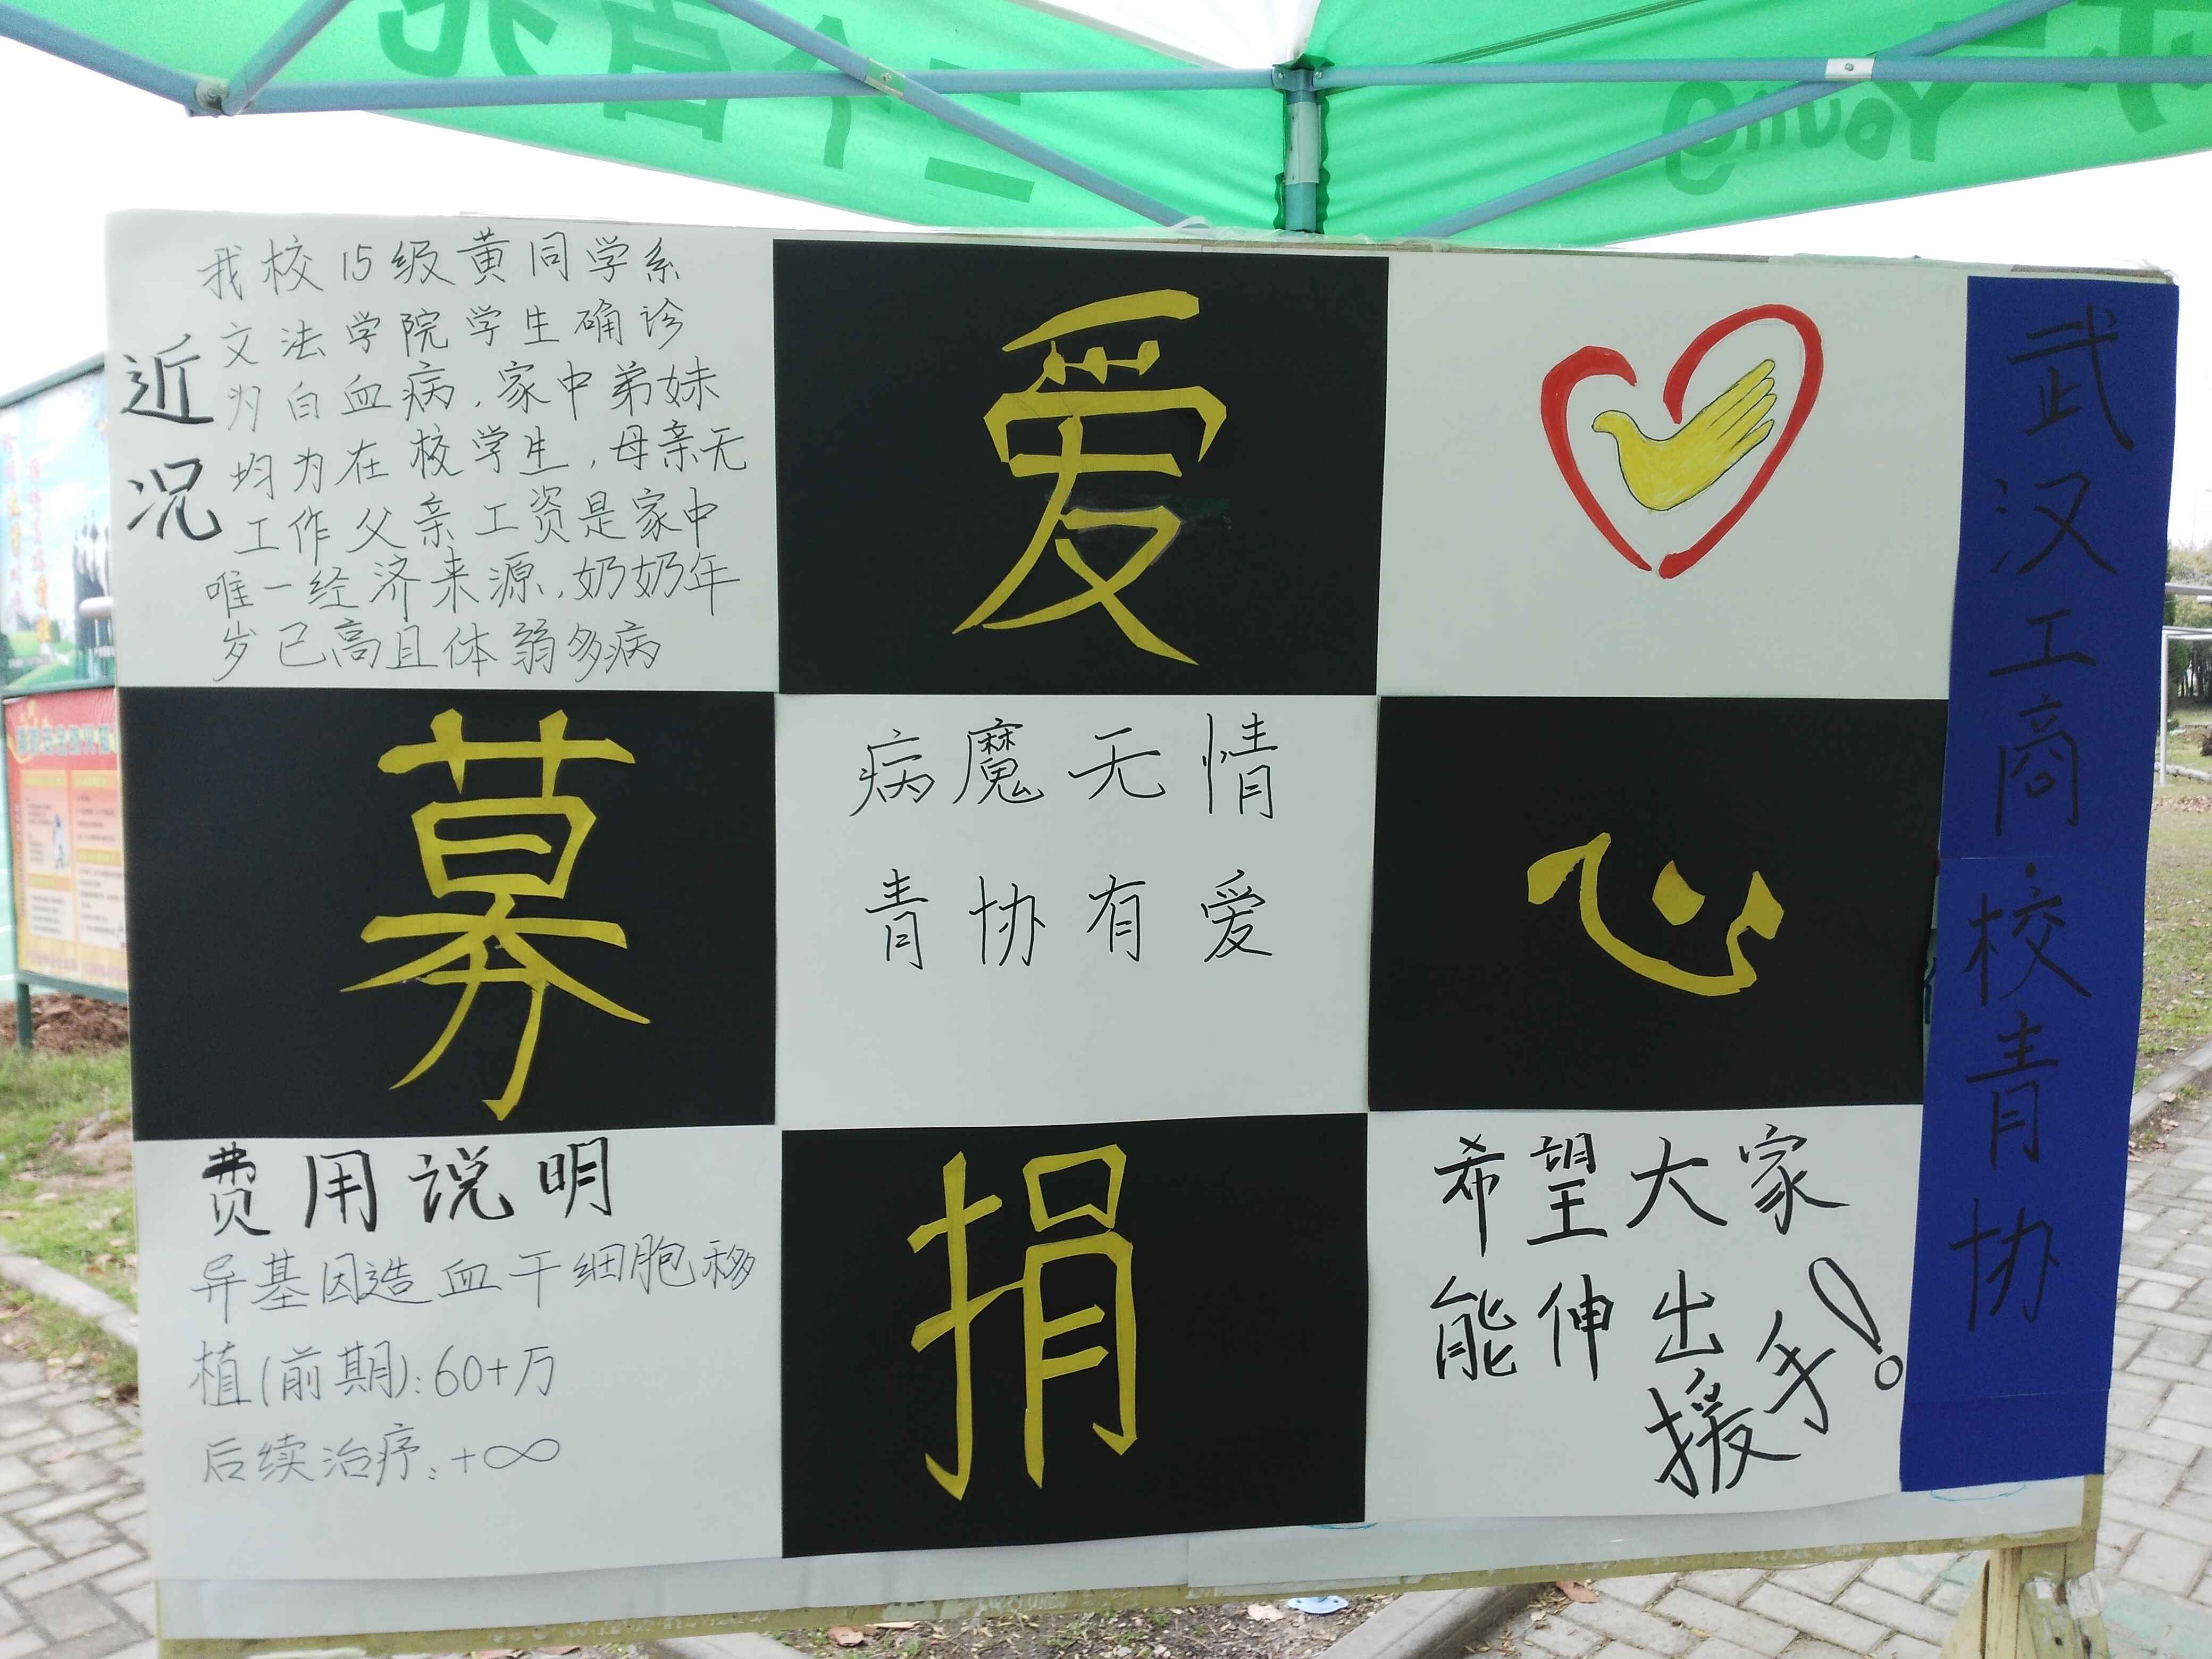 近况
我校15级黄同学系
文法学院学生确诊
为白血病，家中弟妹
均为在校学生，母亲无
工作父亲工资是家中
唯一经济来源，奶奶年
岁已高且体弱多病
爱
募
病魔无情
青协有爱
心
费用说明
异基因造血干细胞移
植(前期):60+万
后续治疗:+∞
捐
希望大家
能伸出
援手!
武汉工商校青协
Young